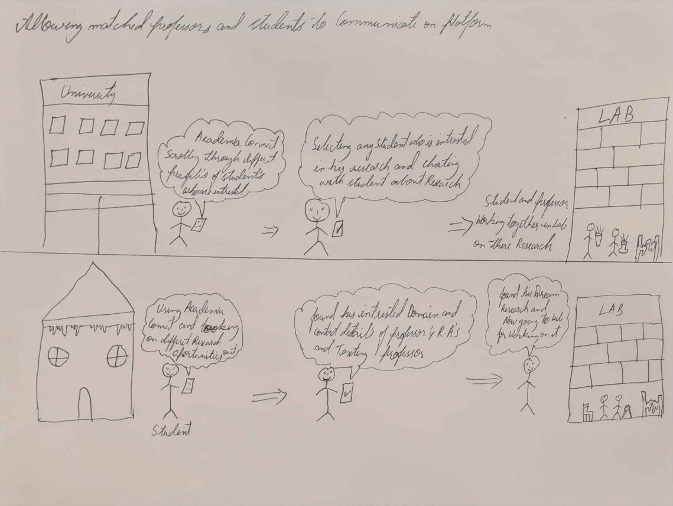 Allowing matched professors and students to Communicate on Platform
University
Academia Connect
Scrolling through diffrent
profiles of students
who are intrested
Selecting any student who is intrested
in his research and chatting
with student about Research
Student and professor
working together in Lab
on there Research
LAB
Using Academia
Connect and looking
on diffrent Research
oportunities
Student
found his intrested Domain and
contact details of professor & RA's
and Texting professor
found his Dream
Research and
Now going to Lab
for working on it
LAB